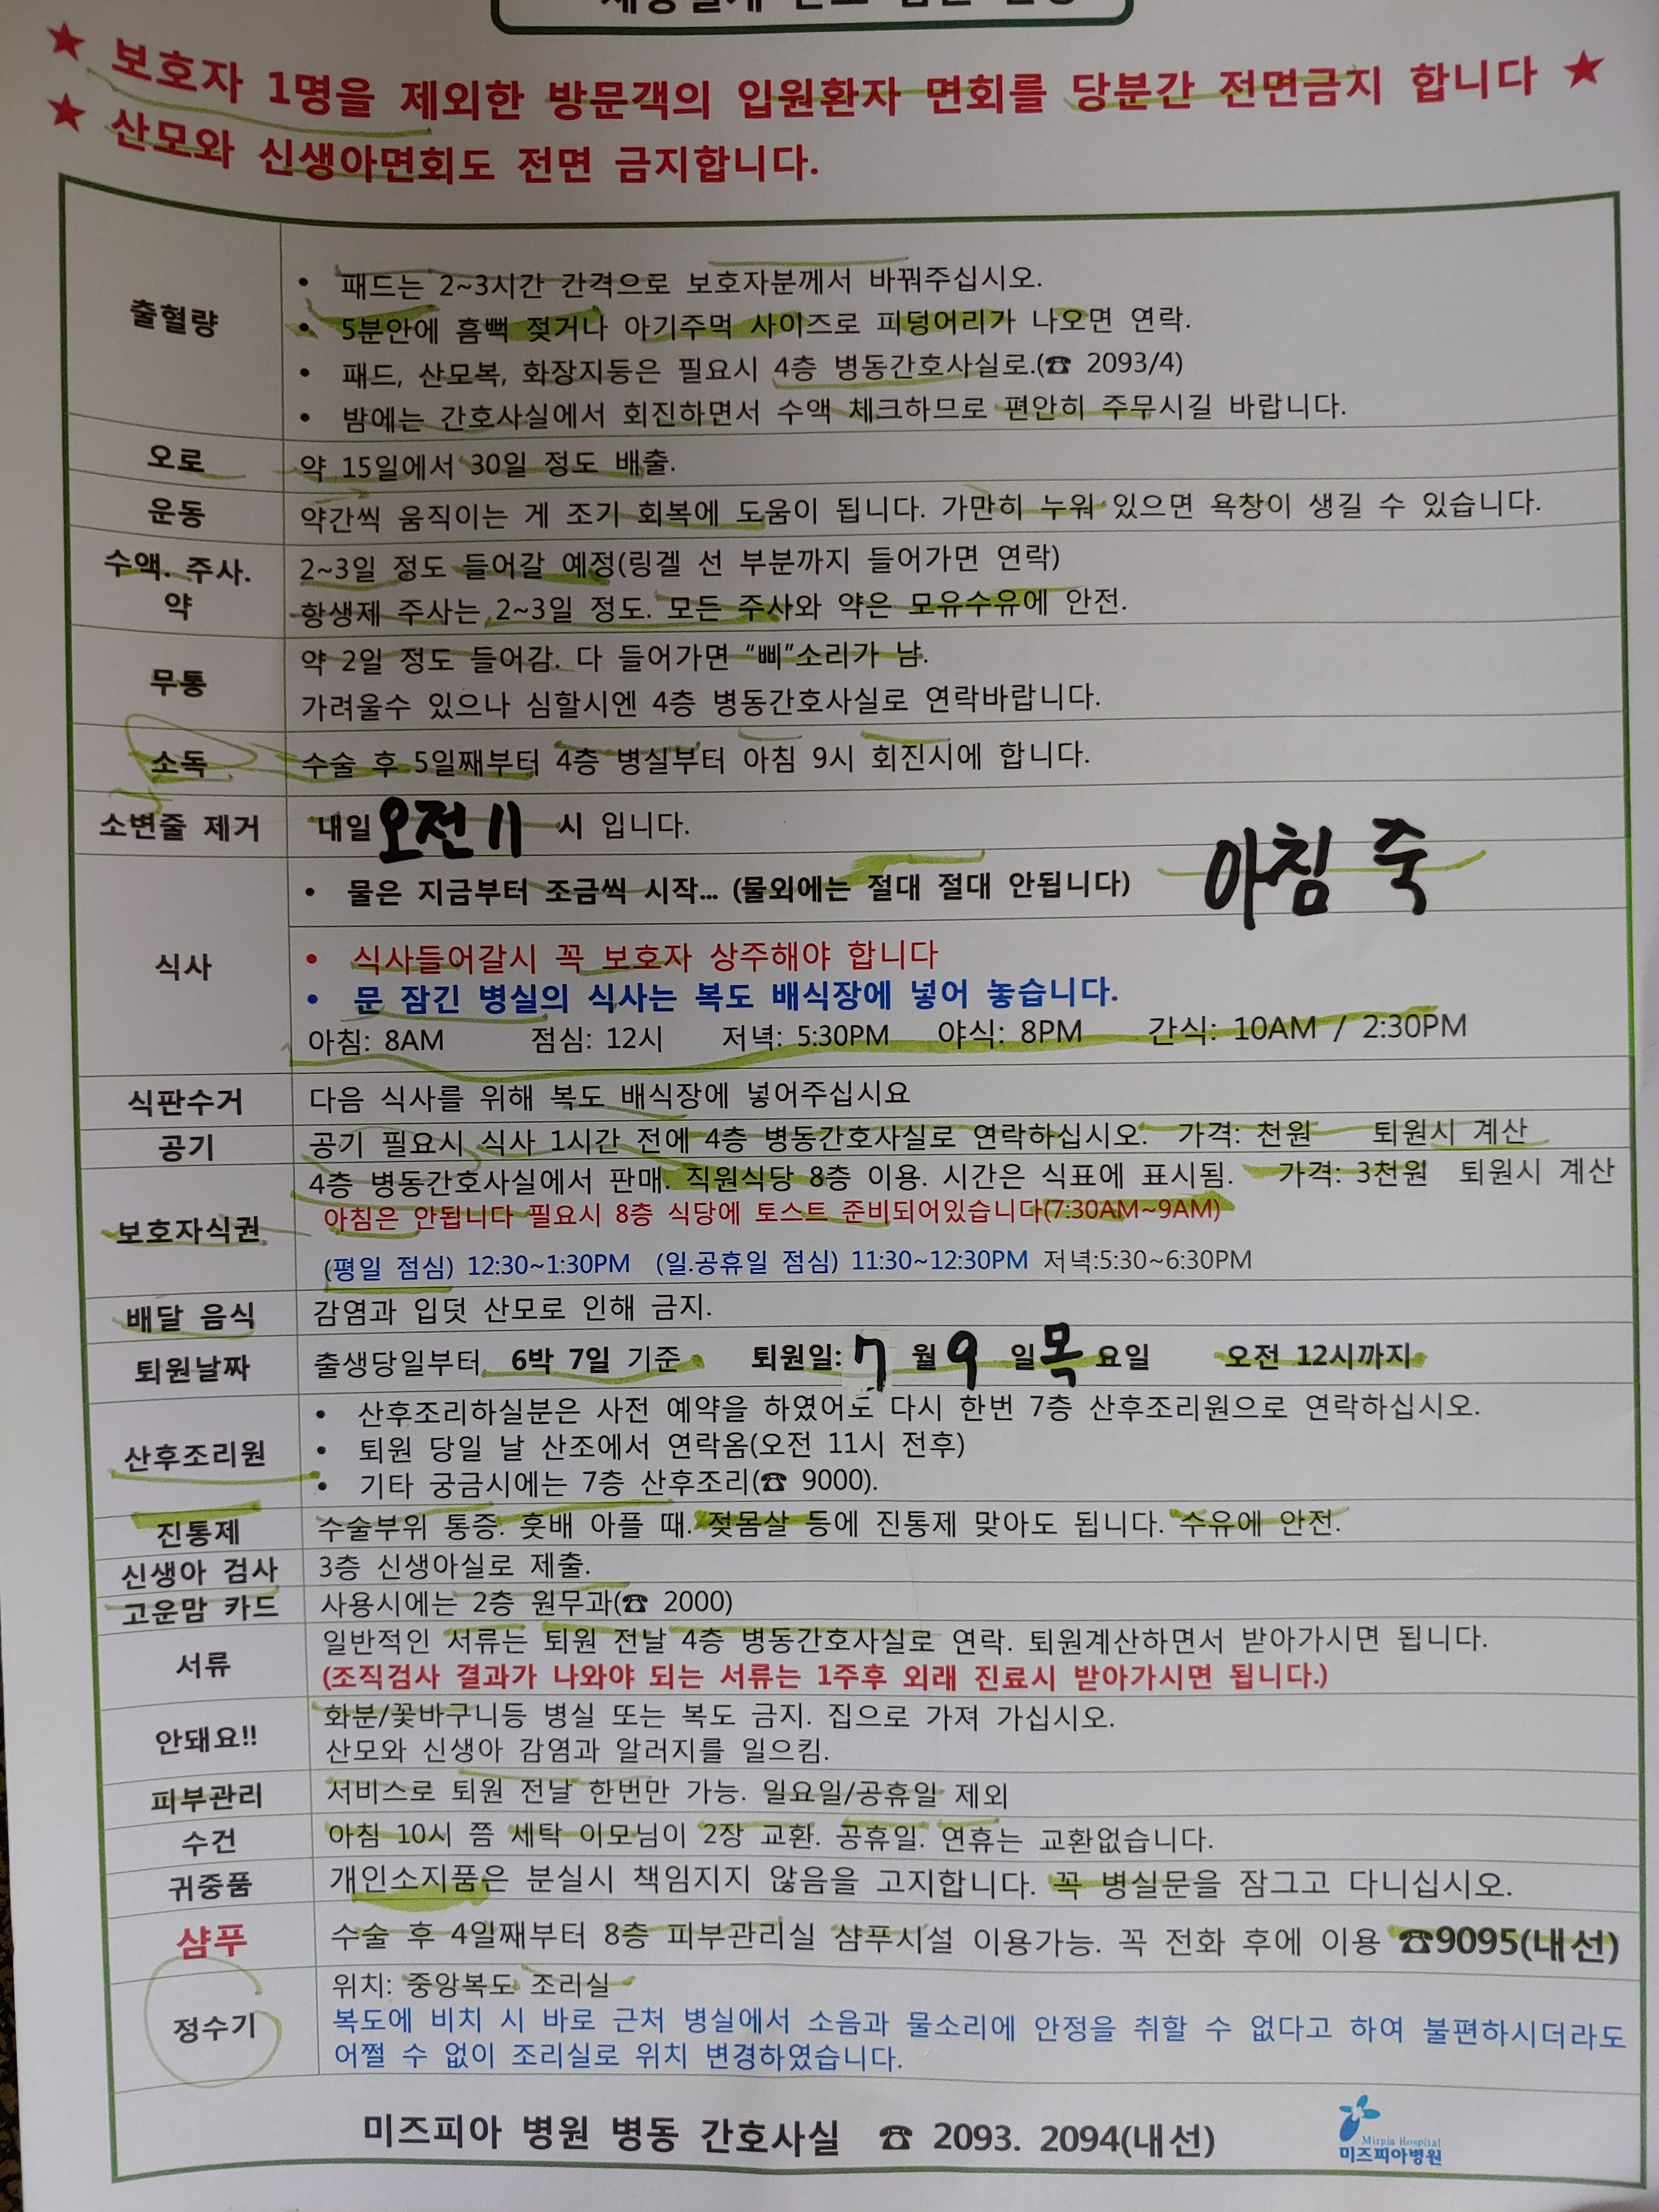 ★ 보호자 1명을 제외한 방문객의 입원환자 면회를 당분간 전면금지 합니다 ★
★ 산모와 신생아면회도 전면 금지합니다.
출혈량
• 패드는 2~3시간 간격으로 보호자분께서 바꿔주십시오.
• 5분안에 흠뻑 젖거나 아기주먹 사이즈로 피덩어리가 나오면 연락.
• 패드, 산모복, 화장지등은 필요시 4층 병동간호사실로.(☎ 2093/4)
• 밤에는 간호사실에서 회진하면서 수액 체크하므로 편안히 주무시길 바랍니다.
오로
약 15일에서 30일 정도 배출.
운동
약간씩 움직이는 게 조기 회복에 도움이 됩니다. 가만히 누워 있으면 욕창이 생길 수 있습니다.
수액. 주사.
약
2~3일 정도 들어갈 예정(링겔 선 부분까지 들어가면 연락)
항생제 주사는 2~3일 정도. 모든 주사와 약은 모유수유에 안전.
무통
약 2일 정도 들어감. 다 들어가면 “삐”소리가 남.
가려울수 있으나 심할시엔 4층 병동간호사실로 연락바랍니다.
소독
수술 후 5일째부터 4층 병실부터 아침 9시 회진시에 합니다.
소변줄 제거
내일 오전 11 시 입니다.
식사
• 물은 지금부터 조금씩 시작... (물외에는 절대 절대 안됩니다)
아침 죽
• 식사들어갈시 꼭 보호자 상주해야 합니다
• 문 잠긴 병실의 식사는 복도 배식장에 넣어 놓습니다.
아침: 8AM 점심: 12시 저녁: 5:30PM 야식: 8PM 간식: 10AM / 2:30PM
식판수거
다음 식사를 위해 복도 배식장에 넣어주십시요
공기
공기 필요시 식사 1시간 전에 4층 병동간호사실로 연락하십시오. 가격: 천원 퇴원시 계산
보호자식권
4층 병동간호사실에서 판매. 직원식당 8층 이용. 시간은 식표에 표시됨. 가격: 3천원 퇴원시 계산
아침은 안됩니다 필요시 8층 식당에 토스트 준비되어있습니다(7:30AM~9AM)
(평일 점심) 12:30~1:30PM (일.공휴일 점심) 11:30~12:30PM 저녁:5:30~6:30PM
배달 음식
감염과 입덧 산모로 인해 금지.
퇴원날짜
출생당일부터 6박 7일 기준 퇴원일: 7 월 9 일 목 요일 오전 12시까지
산후조리원
• 산후조리하실분은 사전 예약을 하였어도 다시 한번 7층 산후조리원으로 연락하십시오.
• 퇴원 당일 날 산조에서 연락옴(오전 11시 전후)
• 기타 궁금시에는 7층 산후조리(☎ 9000).
진통제
수술부위 통증. 훗배 아플 때. 젖몸살 등에 진통제 맞아도 됩니다. 수유에 안전.
신생아 검사
3층 신생아실로 제출.
고운맘 카드
사용시에는 2층 원무과(☎ 2000)
서류
일반적인 서류는 퇴원 전날 4층 병동간호사실로 연락. 퇴원계산하면서 받아가시면 됩니다.
(조직검사 결과가 나와야 되는 서류는 1주후 외래 진료시 받아가시면 됩니다.)
안돼요!!
화분/꽃바구니등 병실 또는 복도 금지. 집으로 가져 가십시오.
산모와 신생아 감염과 알러지를 일으킴.
피부관리
서비스로 퇴원 전날 한번만 가능. 일요일/공휴일 제외
수건
아침 10시 쯤 세탁 이모님이 2장 교환. 공휴일. 연휴는 교환없습니다.
귀중품
개인소지품은 분실시 책임지지 않음을 고지합니다. 꼭 병실문을 잠그고 다니십시오.
샴푸
수술 후 4일째부터 8층 피부관리실 샴푸시설 이용가능. 꼭 전화 후에 이용 ☎9095(내선)
정수기
위치: 중앙복도 조리실
복도에 비치 시 바로 근처 병실에서 소음과 물소리에 안정을 취할 수 없다고 하여 불편하시더라도
어쩔 수 없이 조리실로 위치 변경하였습니다.
미즈피아 병원 병동 간호사실 ☎ 2093. 2094(내선)
Mizpia Hospital
미즈피아병원